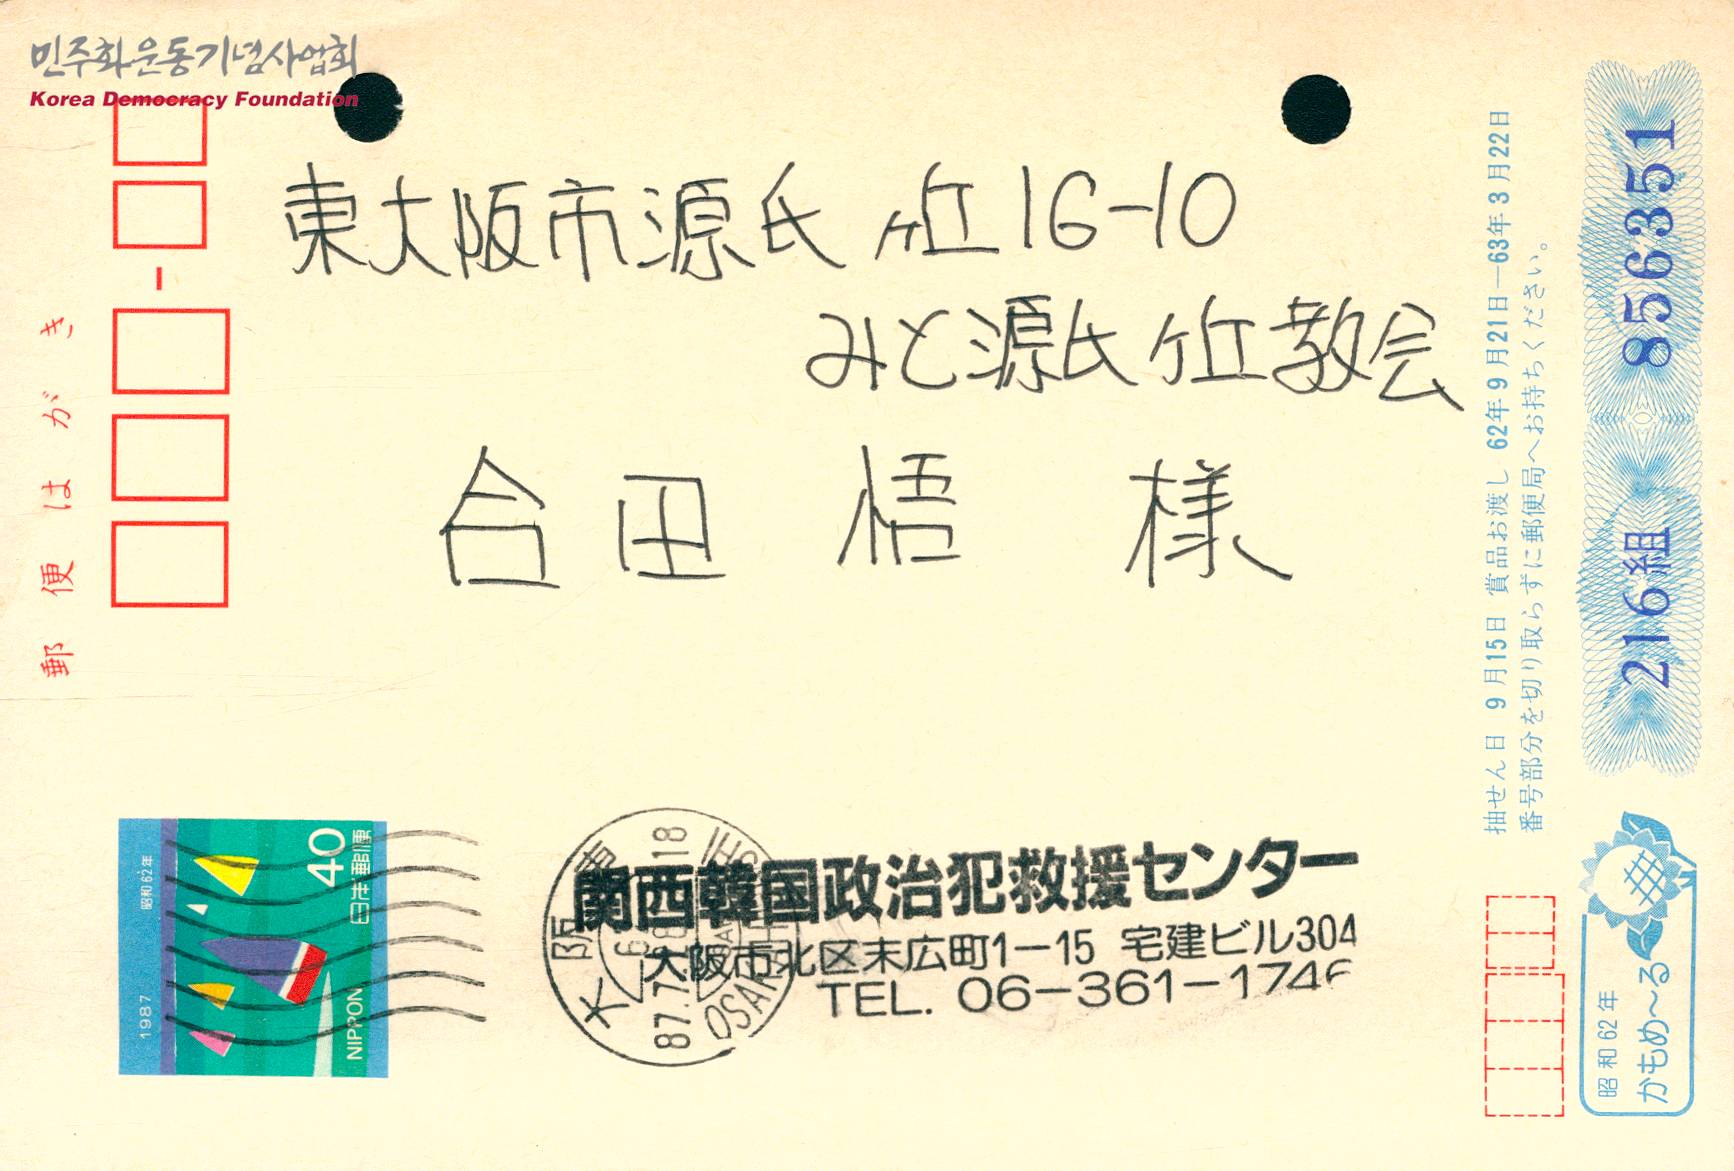 민주화운동기념사업회
Korea Democracy Foundation
郵便はがき
東大阪市源氏ヶ丘16-10
みと源氏ヶ丘教会
合田 悟 様
関西韓国政治犯救援センター
大阪市北区末広町1-15 宅建ビル304
TEL. 06-361-1746
大阪
87.7
18
OSAKA
昭和62年
1987
40
日本郵便
NIPPON
抽せん日 9月15日 賞品お渡し 62年9月21日—63年3月22日
番号部分を切り取らずに郵便局へお持ちください。
216組 856351
昭和62年
かもめ〜る